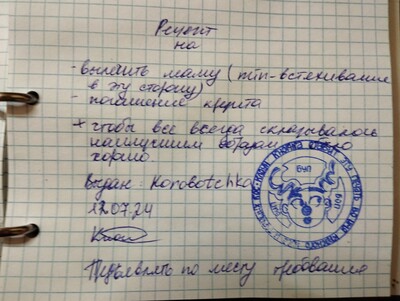 Рецепт
на
- вылечить маму (min - встехивание
в эту сторону)
- погашение кредита
* чтобы все всегда складывалось
наилучшим образом и было
хорошо
Выдан: Korobotchka
12.07.24
Предъявлять по месту требования
БУП